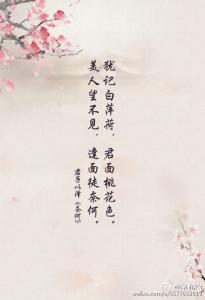 犹记白薄荷，君面桃花色。
美人望不见，逢面徒奈何。
君子以泽《奈何》
weibo.com/u/5577652819